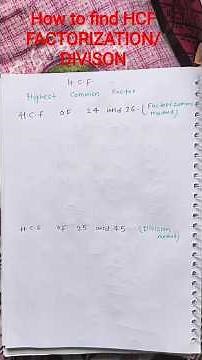 How to find HCF
FACTORIZATION/
DIVISON
H.C.F
Highest Common Factor
H.C.F of 24 and 36. (Factorization method)
H.C.F of 25 and 45. (Division method)